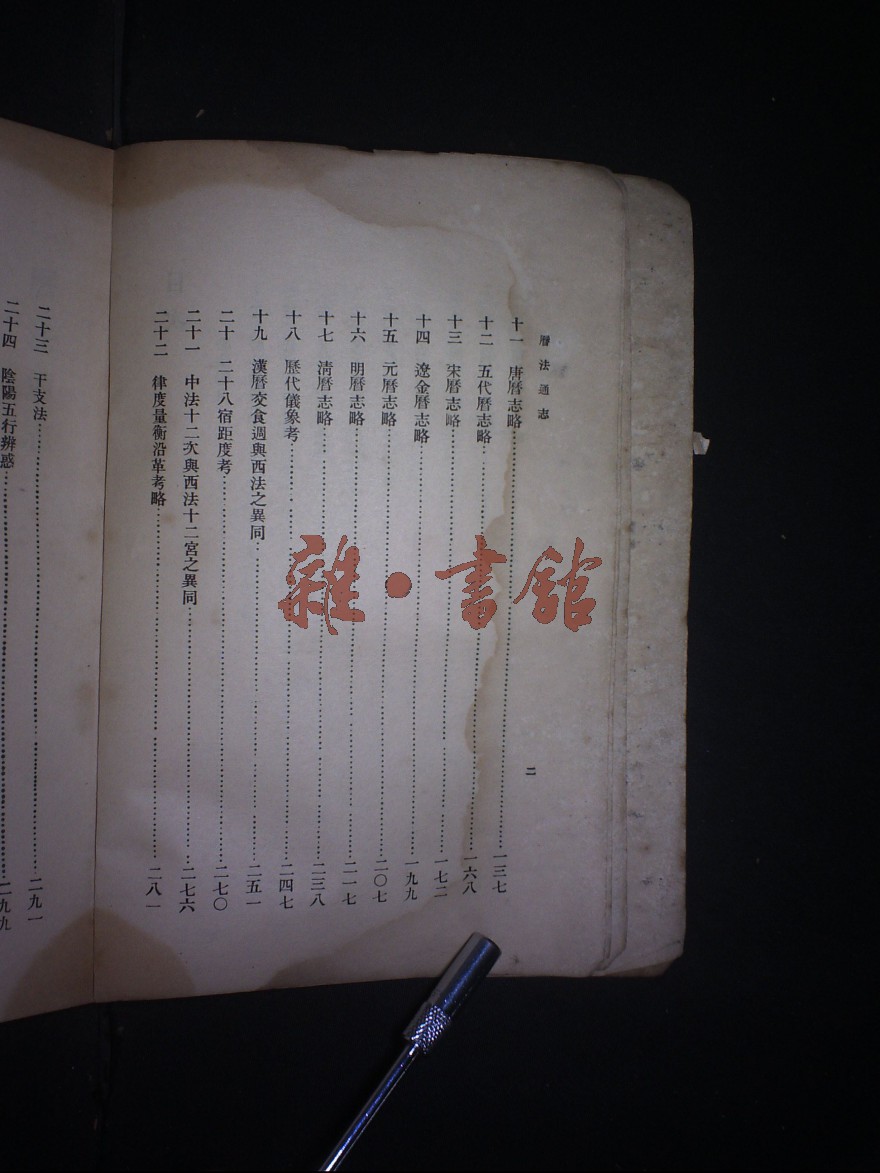 曆法通志
二
十一　唐曆志略……一三七
十二　五代曆志略……一六八
十三　宋曆志略……一七二
十四　遼金曆志略……一九九
十五　元曆志略……二〇七
十六　明曆志略……二一七
十七　淸曆志略……二三八
十八　歷代儀象考……二四七
十九　漢曆交食週與西法之異同……二五一
二十　二十八宿距度考……二七〇
二十一　中法十二次與西法十二宮之異同……二七六
二十二　律度量衡沿革考略……二八一
二十三　干支法……二九一
二十四　陰陽五行辨惑……二九九
雜·書館